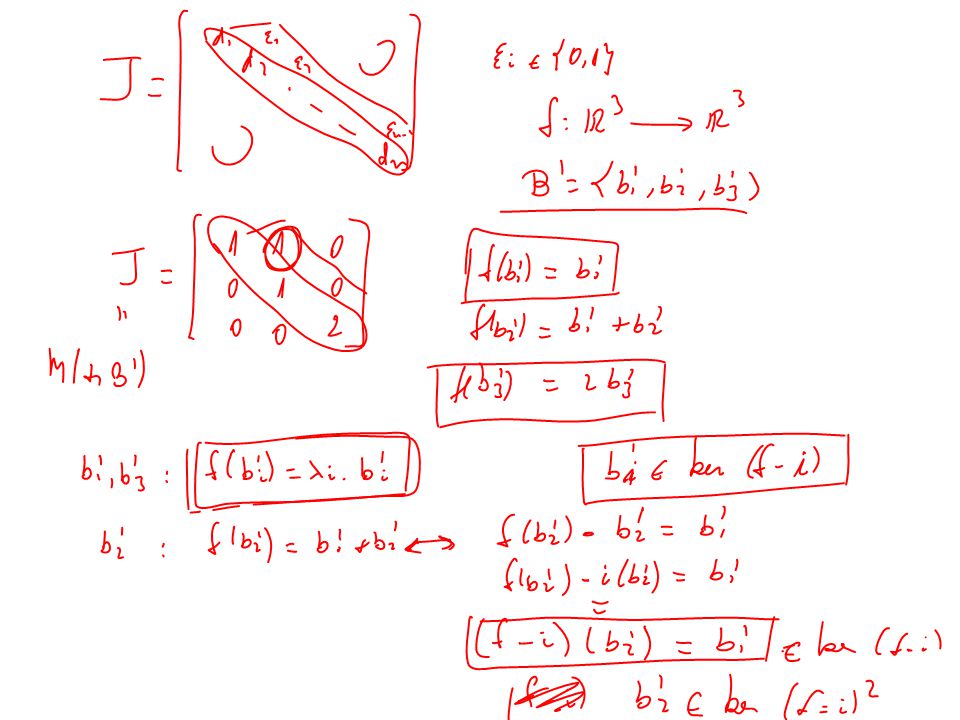 J = [ d₁ ε₁ d₂ ε₂ . - - εₙ₋₁ dₙ 0 0 ]
εᵢ ∈ {0,1}
f: ℝ³ ⟶ ℝ³
B' = {b₁', b₂', b₃'}
J = [ 1 1 0
0 1 0
0 0 2 ]
"
M(f, B')
f(b₁') = b₁'
f(b₂') = b₁' + b₂'
f(b₃') = 2 b₃'
b₁', b₃' : f(bᵢ') = λᵢ . bᵢ'
b₁' ∈ ker (f - i)
b₂' : f(b₂') = b₁' + b₂' ⟷ f(b₂') - b₂' = b₁'
f(b₂') - i(b₂') = b₁'
=
(f - i) (b₂') = b₁' ∈ ker (f - i)
b₂' ∈ ker (f - i)²